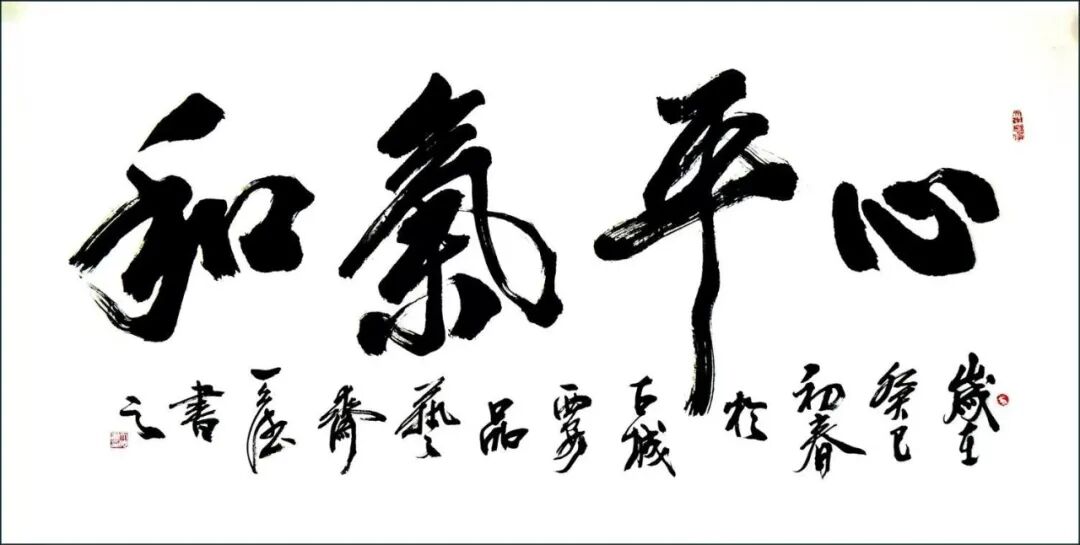 心平氣和
歲在癸巳初春於古城西安品藝齋一滴書之